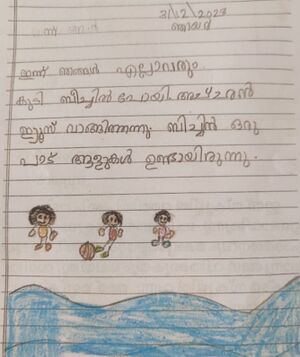 31/12/2023
ഞായർ
ഇന്ന് ഞങ്ങൾ എല്ലാവരും
കുടി ബീച്ചിൽ പോയി. അച്ചൻ
ഐസ് വാങ്ങിത്തന്നു. ബിച്ചിൻ ഒരു
പാട് ആളുകൾ ഉണ്ടായിരുന്നു.